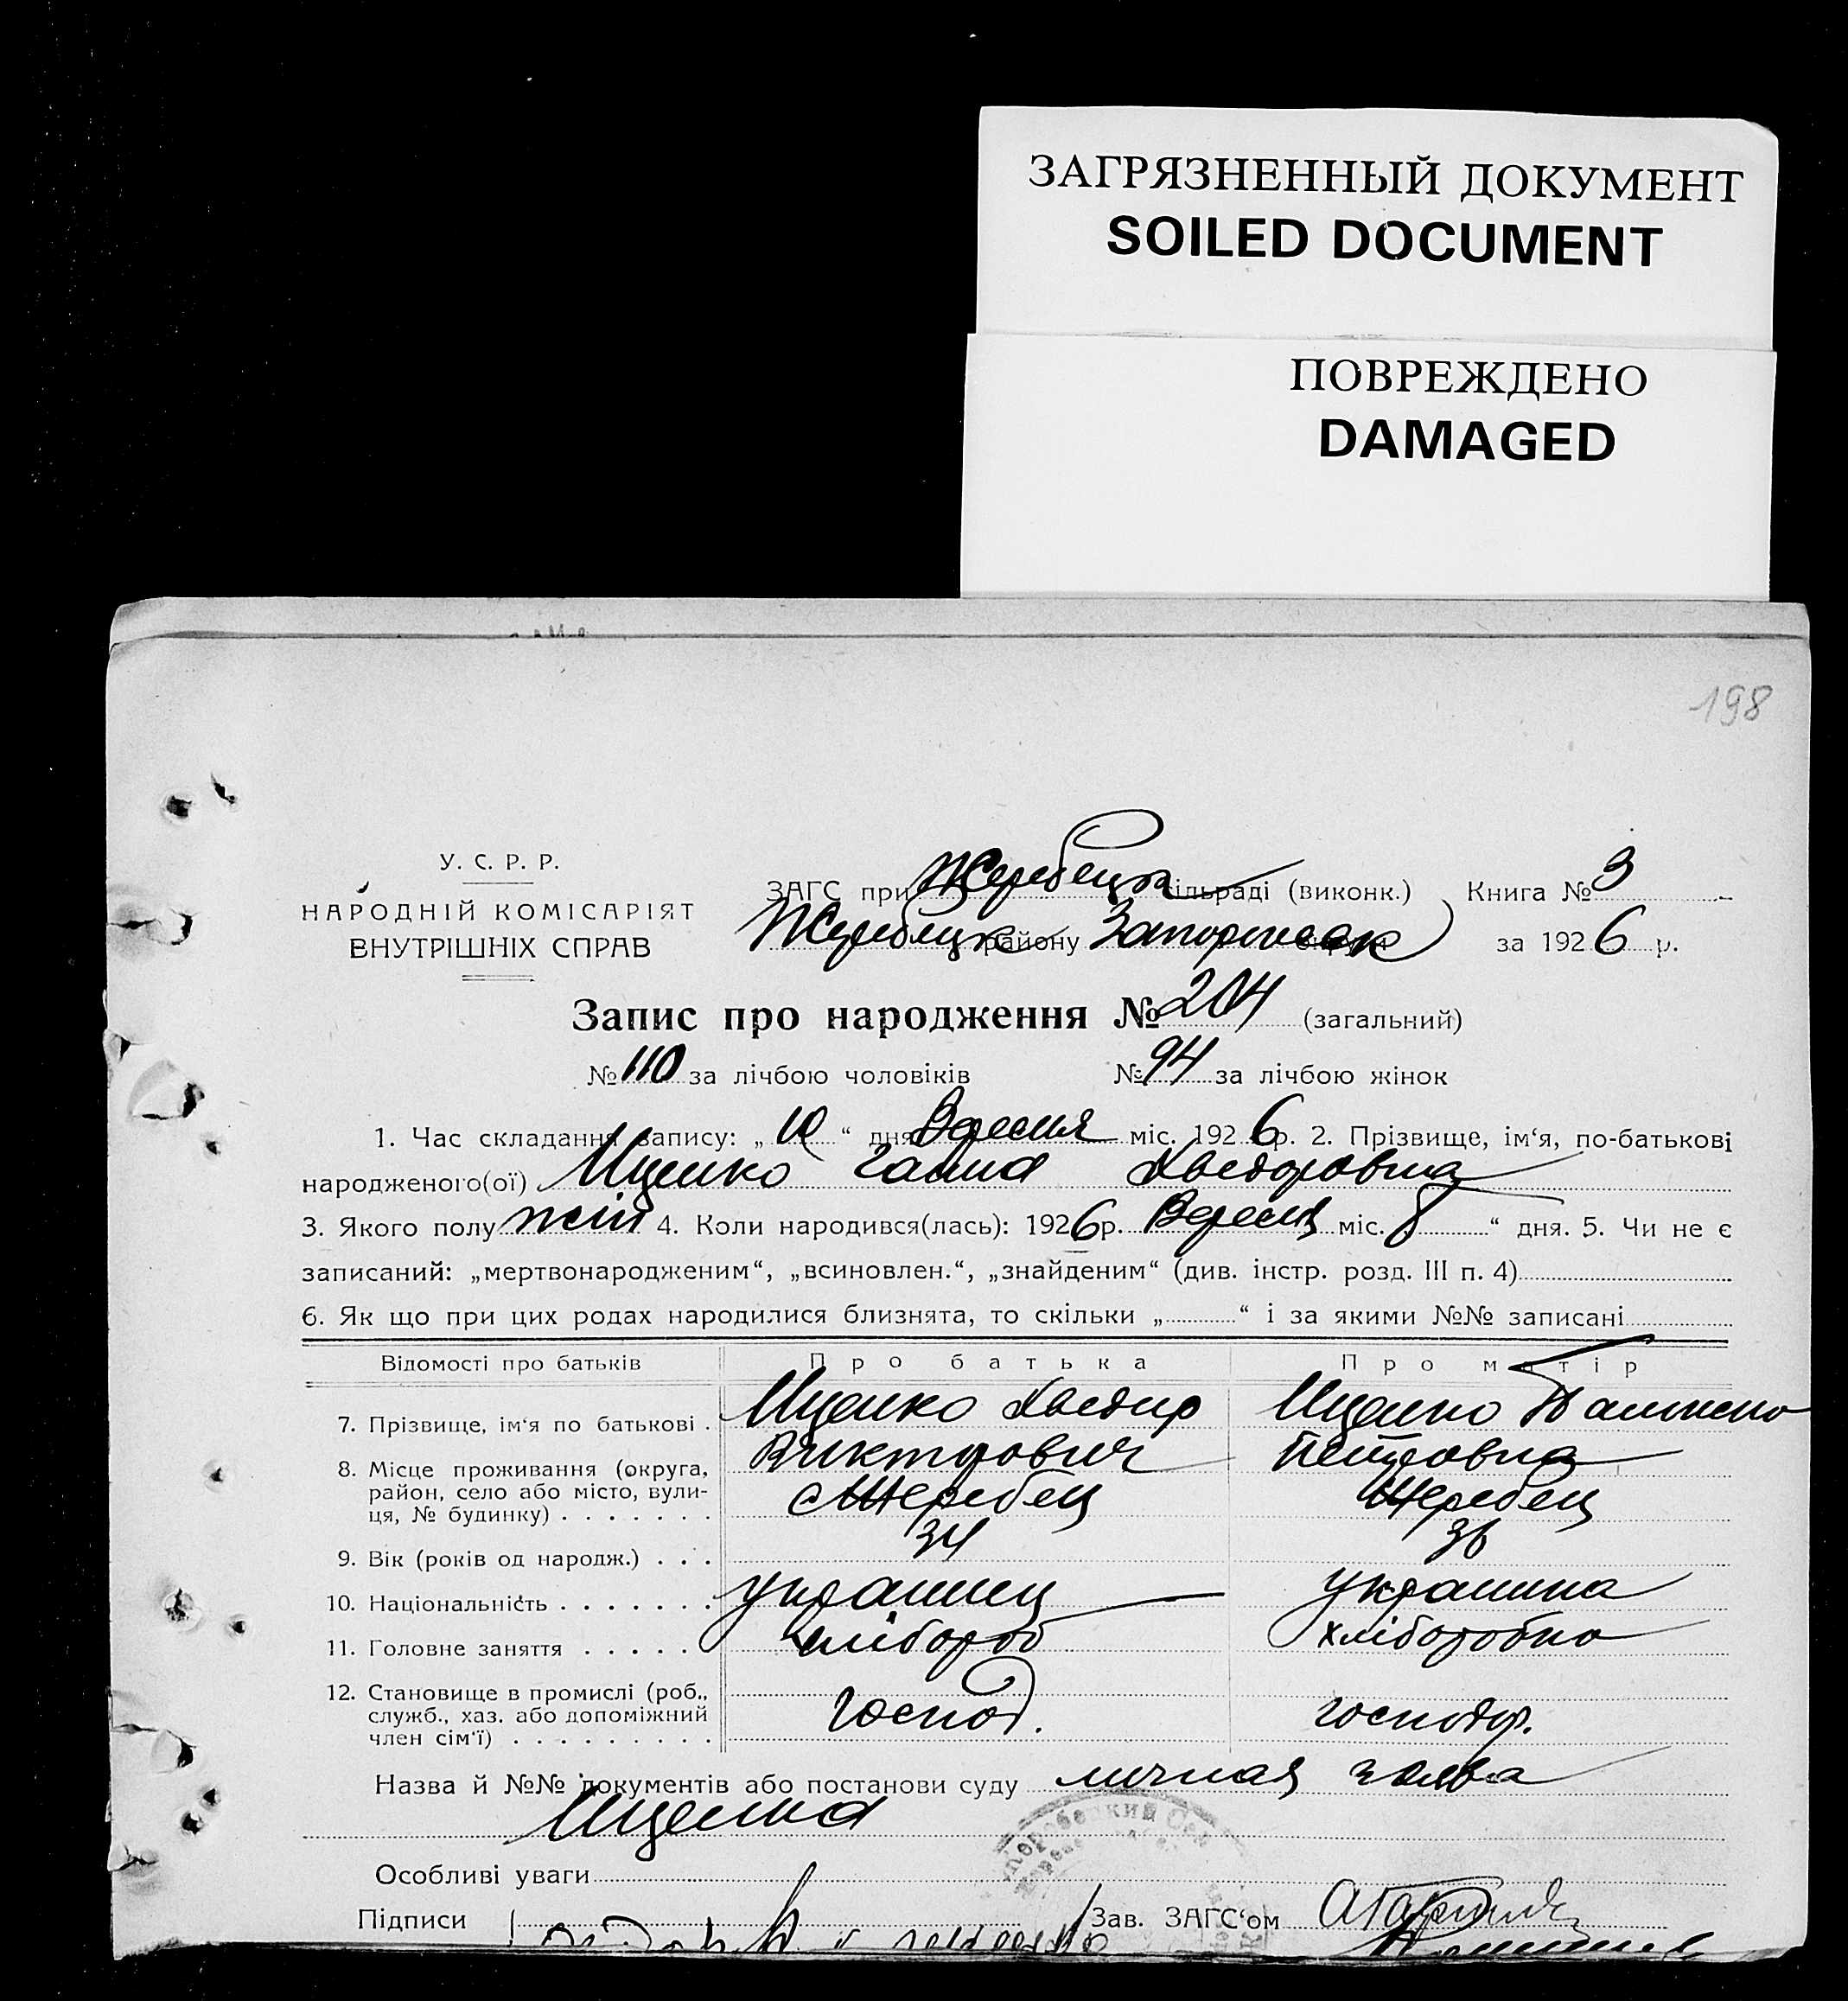 ЗАГРЯЗНЕННЫЙ ДОКУМЕНТ
SOILED DOCUMENT
ПОВРЕЖДЕНО
DAMAGED
198
У. С. Р. Р.
НАРОДНІЙ КОМІСАРІЯТ
ВНУТРІШНІХ СПРАВ
ЗАГС при Жеребецк сільраді (виконк.) Книга № 3
Жеребецк району Запорожск округи за 1926 р.
Запис про народження № 204 (загальний)
№ 110 за лічбою чоловіків № 94 за лічбою жінок
1. Час складання запису: „ 10 “ дня Вересня міс. 1926 р. 2. Прізвище, ім‘я, по-батькові
народженого(ої) Іщенко Ганна Хведоровна
3. Якого полу жін 4. Коли народився(лась): 1926 р. Вересня міс. 8 “ дня. 5. Чи не є
записаний: „мертвонародженим“, „всиновлен.“, „знайденим“ (див. інстр. розд. III п. 4)
6. Як що при цих родах народилися близнята, то скільки „ “ і за якими №№ записані
Відомості про батьків Про батька Про матір
7. Прізвище, ім‘я по батькові . Іщенко Хведир Іщенко
Викторович Петровна
8. Місце проживання (округа,
район, село або місто, вули-
ця, № будинку) . . . . . . . с Жеребец Жеребец
9. Вік (років од народж.) . . . 34 36
10. Національність . . . . . . . украинец украинка
11. Головне заняття . . . . . хлібороб хліборобка
12. Становище в промислі (роб.,
служб., хаз. або допоміжний
член сім‘ї) . . . . . . . . . господ. господар.
Назва й №№ документів або постанови суду личная заява
Іщенка
Особливі уваги
Підписи Зав. ЗАГС‘ом